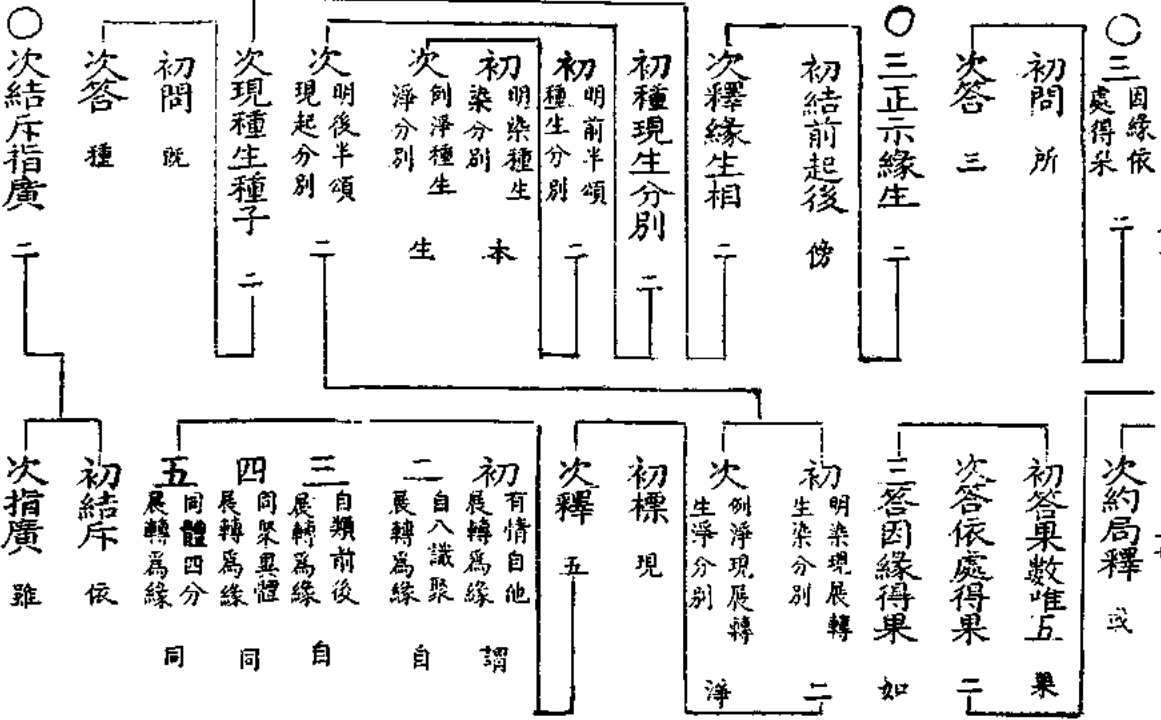 ○三 因緣依處得果 二
初問 所
次答 三
○三正示緣生 二
初結前起後 傍
次釋緣生相 二
初種現生分別 二
初 明前半頌種生分別 二
初 明染種生染分別 本
次 例淨種生淨分別 生
次 明後半頌現起分別 二
次現種生種子 二
初問 既
次答 種
○次結斥指廣 二
次約局釋 或
初答果數唯五 果
次答依處得果 二
三答因緣得果 如
初 明染現展轉生染分別 二
次 例淨現展轉生淨分別 淨
初標 現
次釋 五
初 有情自他展轉爲緣 謂
二 自八識聚展轉爲緣 自
三 自類前後展轉爲緣 自
四 同聚異體展轉爲緣 同
五 同體四分展轉爲緣 同
初結斥 依
次指廣 雖